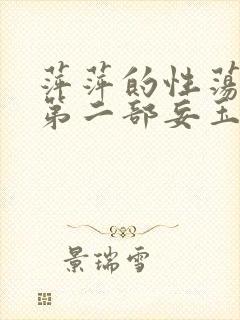 萍萍的性荡
第二部妄玉
景瑞雪